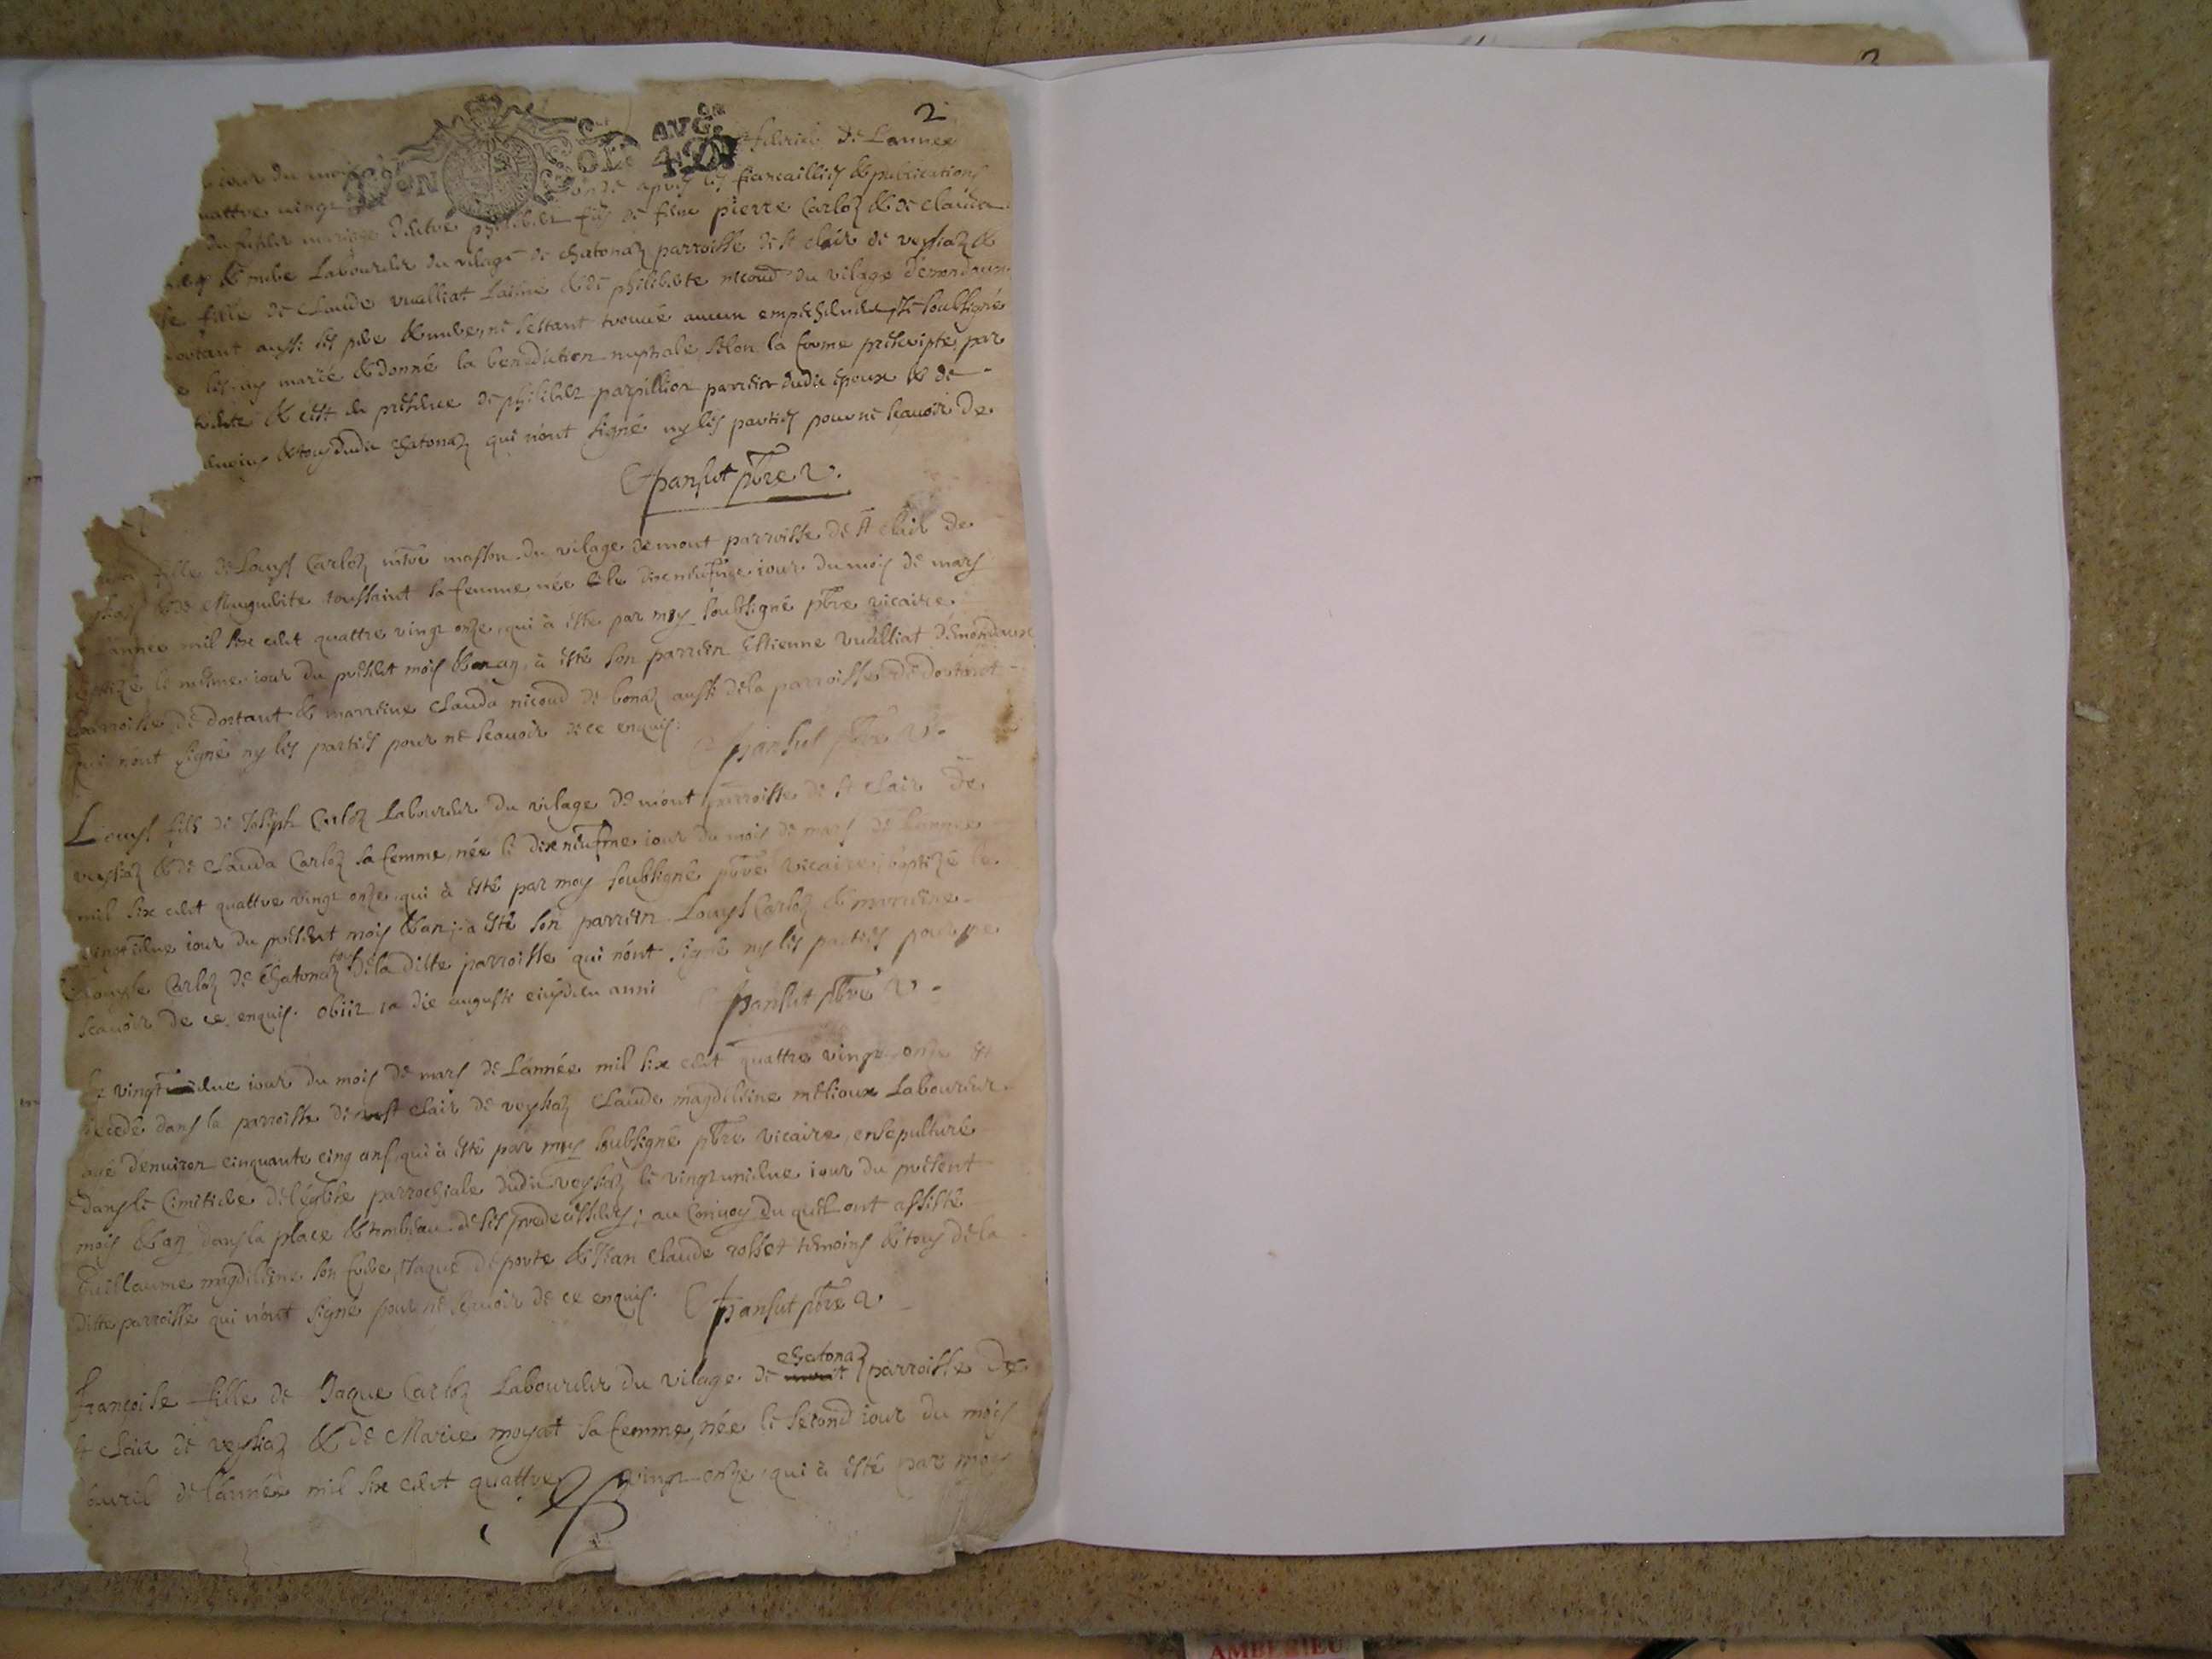 2
AVG.
iour du mois feburier de L'année
quattre vingt onze apres les fiancailles & publications
du futur mariage entre philibert fils de feu pierre Carloz & de Clauda
& mere Laboureur du vilage de chatonaz parroisse de st clair de veysiaz &
fille de Claude vualliat Laisné & de philiberte nicoud du vilage d'emondaux
dortant aussi ses pere & mere, ne s'estant trouué aucun empeschement ie soubsigné
les ay marié & donné la benediction nuptiale selon la forme prescripte par
& c'est en presence de philibert parpillion parrein dudit epoux & de
temoins & tous dudit chatonaz qui n'ont signé ny les parties pour ne scauoir de
Pansut pbre v.
fille de Louys Carloz mtre masson du vilage de mont parroisse de st clair de
& de Marguerite toussaint sa femme née le dixneufme iour du mois de mars
année mil six cent quattre vingt onze, qui à esté par moy soubsigné pbre vicaire
baptizé le mesme iour du present mois & an, à esté son parrein Estienne vualliat d'emondaux
parroisse de dortant & marreine Clauda nicoud de bonaz aussi de la parroisse de dortant
qui n'ont signé ny les parties pour ne scauoir de ce enquis.
Pansut pbre v.
Louys fils de Joseph Carloz Laboureur du vilage de mont parroisse de st Clair de
veysiaz & de Clauda Carloz sa femme, née le dixneufme iour du mois de mars de l'année
mil six cent quattre vingt onze, qui à esté par moy soubsigné pbre vicaire, baptizé le
vingtieme iour du present mois & an; à esté son parrein Louys Carloz & marreine
Louyse Carloz de chatonaz tous de la ditte parroisse qui n'ont signé ny les parties pour ne
scauoir de ce enquis. obiit 1a die augusti eiusdem anni
Pansut pbre v.
Le vingtieme iour du mois de mars de L'année mil six cent quattre vingt onze est
decedé dans la parroisse de st Clair de veysiaz Claude magdeleine melioux Laboureur
agé d'enuiron cinquante cinq ans, qui à esté par moy soubsigné pbre vicaire, ensepulturé
dans le Cimitiere de l'église parrochiale dudit veysiaz le vingtunieme iour du present
mois & an dans la place & tombeau de ses predecesseurs; au Conuoy du quel ont assisté
Guillaume magdeleine son frere, Jaque de porte & Jean Claude rosset temoins & tous de la
ditte parroisse qui n'ont signé pour ne scauoir de ce enquis.
Pansut pbre v
chatonaz
françoise fille de Jaque Carloz Laboureur du vilage de mont parroisse de
st Clair de veysiaz & de Marie moyat sa femme, née le second iour du mois
d'avril de l'année mil six cent quattre vingt onze, qui à esté par moy
AMBERIEU